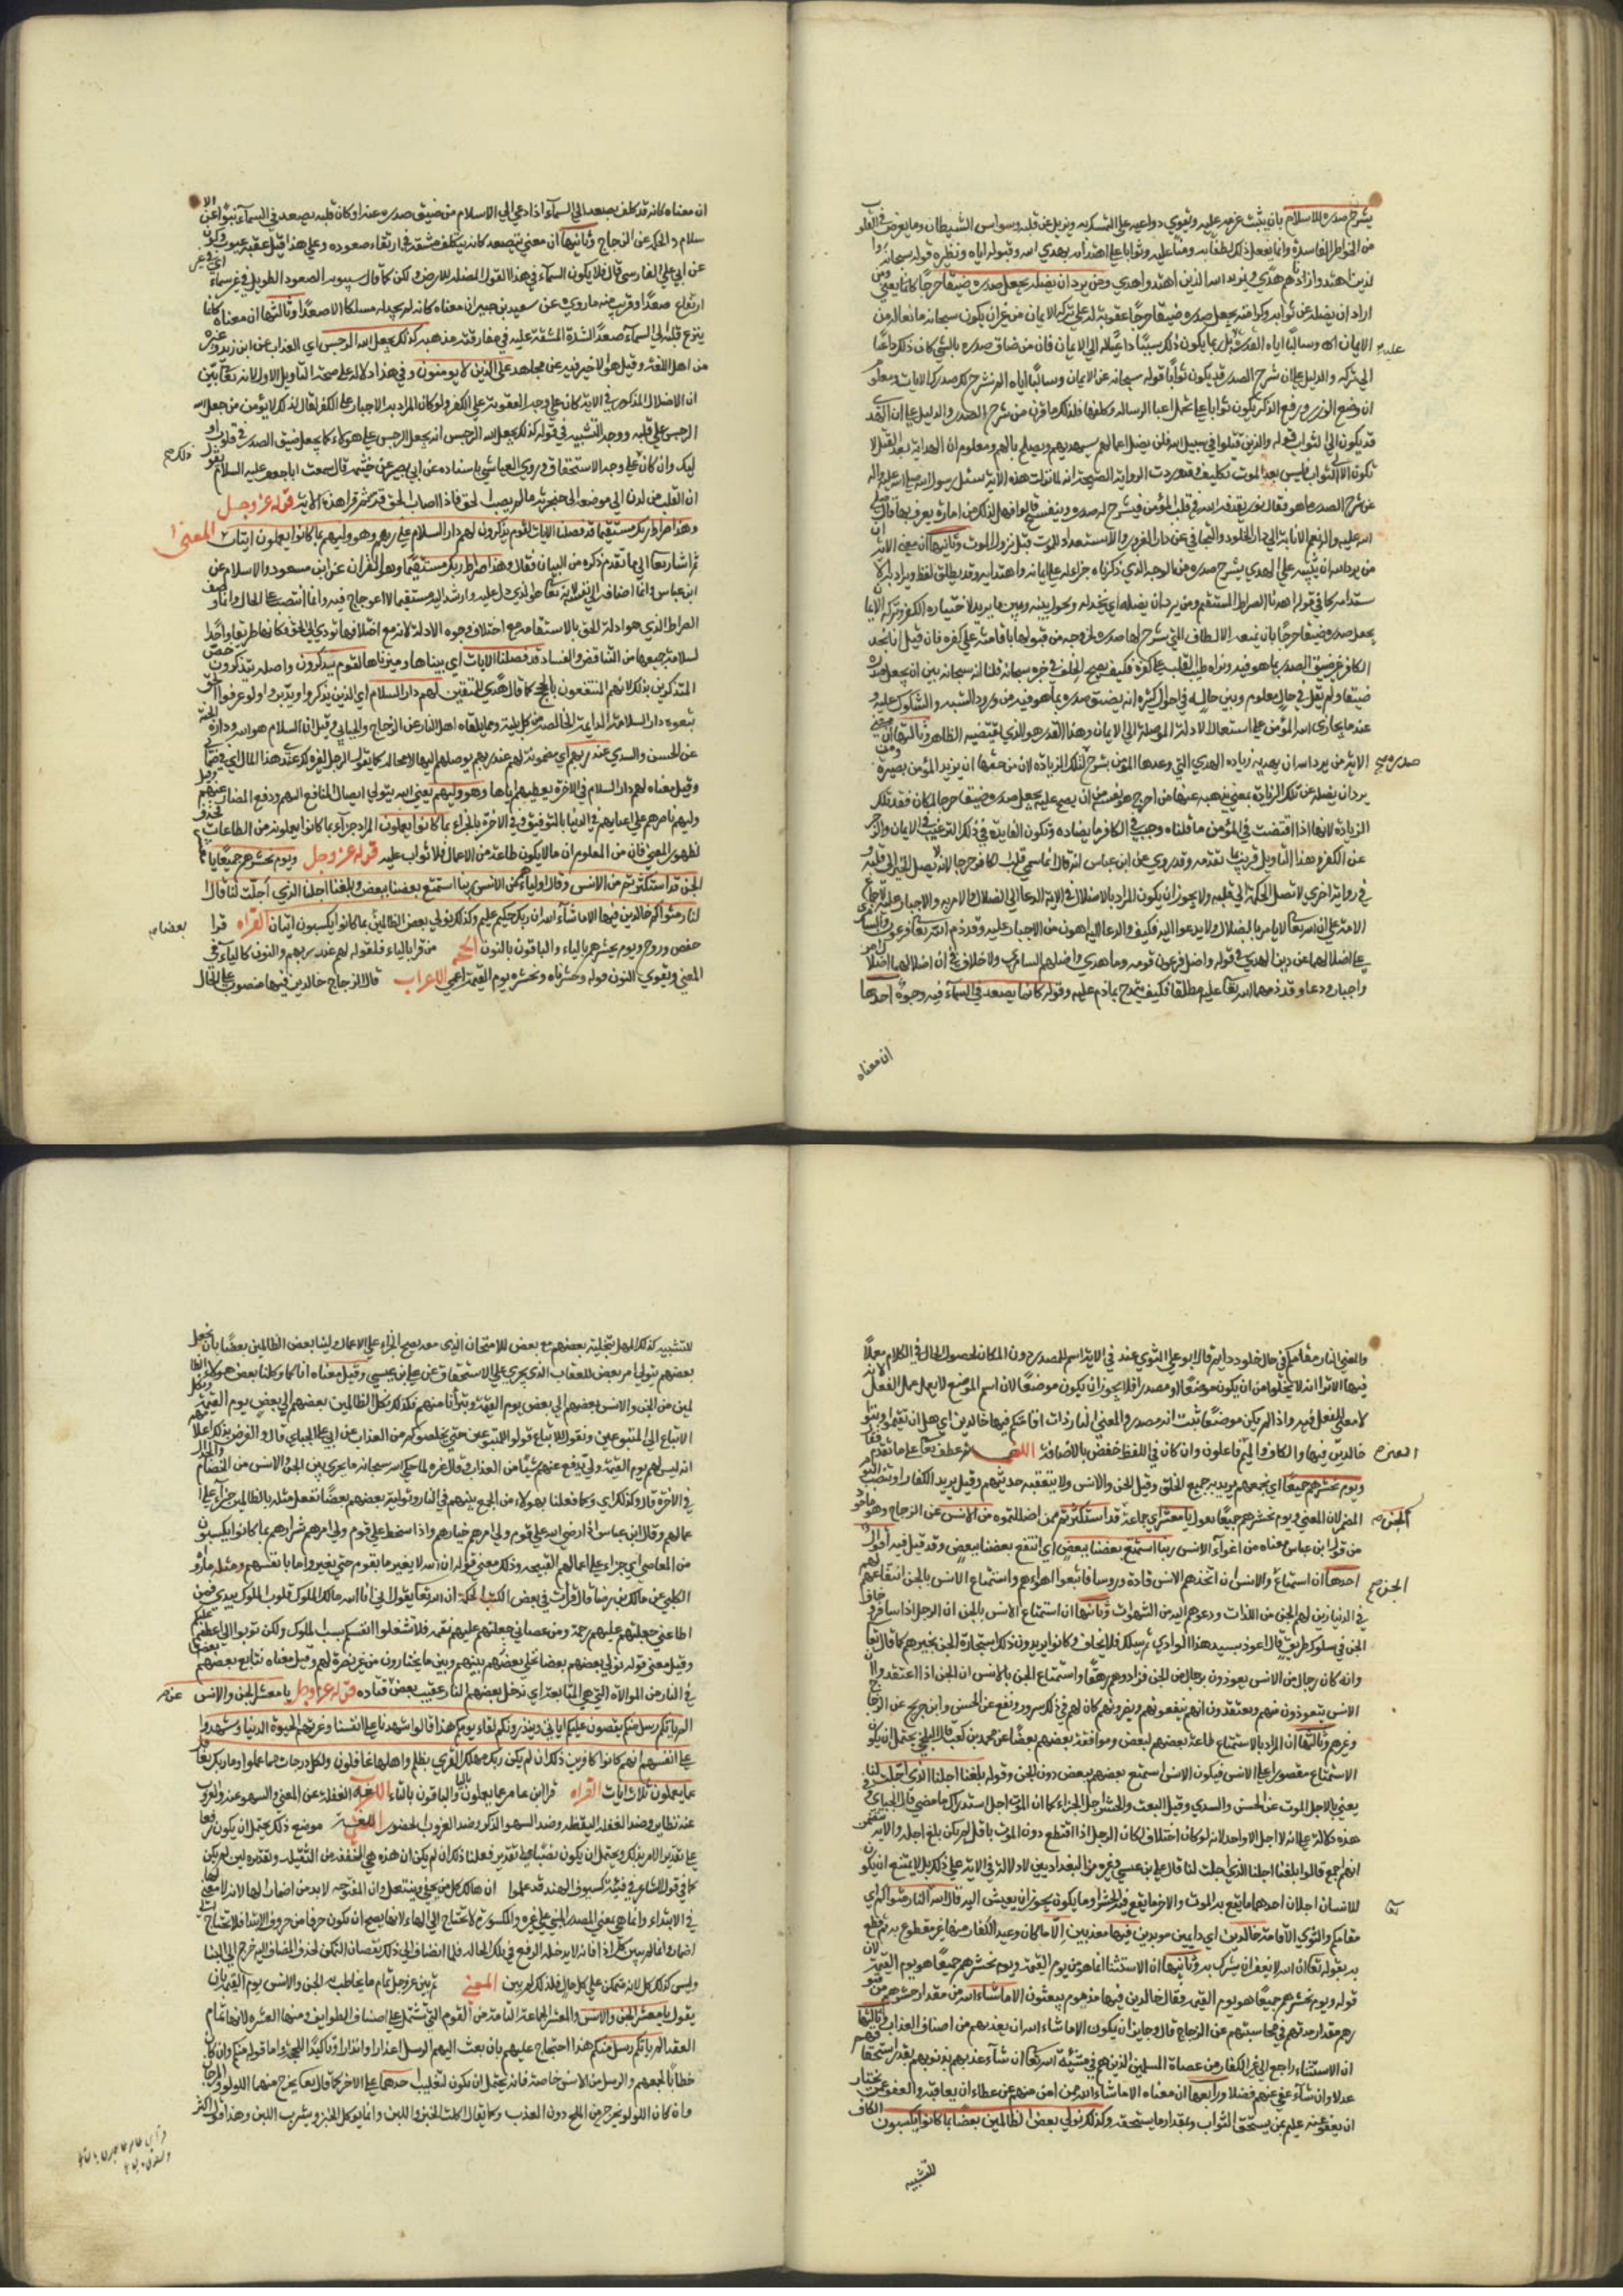 يشرح صدره للاسلام بان يثبت عزمه عليه ويقوي دواعيه على التمسك به ويزيل عن قلبه وسواس الشيطان وما يعرض في القلوب
من الخواطر الفاسدة وانما يفعل ذلك لطفا به ومنا عليه وثوابا على اهتدائه بهدي الله وقبوله اياه ونظيره قوله سبحانه وا
لذين اهتدوا زادهم هدي ويزيد الله الذين اهتدوا هدي ومن يرد ان يضله يجعل صدره ضيقا حرجا كانما يعني ومن
اراد ان يضله عن ثوابه وكرامته يجعل صدره ضيقا حرجا عقوبة له على تركه الايمان من غير ان يكون سبحانه مانعا له من
الايمان وسالبا اياه القدرة عليه بل ربما يكون ذلك سببا داعيا له الي الايمان فان من ضاق صدره بالشي كان ذلك داعيا
الي تركه والدليل على ان شرح الصدر قد يكون ثوابا قوله سبحانه الم نشرح لك صدرك الايات ومعلوم
ان وضع الوزر ورفع الذكر يكون ثوابا على تحمل اعبا الرساله وكلفها فلذلك ما قرن من شرح الصدر والدليل على ان الهدي
قد يكون الي الثواب قوله والذين قتلوا في سبيل الله فلن يضل اعمالهم سيهديهم ويصلح بالهم ومعلوم ان الهداية بعد القتل لا
تكون الا الي الثواب فليس بعد الموت تكليف وقد وردت الرواية الصحيحة انه لما نزلت هذه الاية سئل رسول الله صلى الله عليه واله
عن شرح الصدر ما هو فقال نور يقذفه الله في قلب المؤمن فيشرح له صدره وينفسح قالوا فهل لذلك من امارة يعرف بها قال صلى
الله عليه واله نعم الانابة الي دار الخلود والتجافي عن دار الغرور والاستعداد للموت قبل نزول الموت وثانيها ان معني الاية
من يرد الله ان يثبته على الهدي يشرح صدره من الوجه الذي ذكرناه جزاء له على ايمانه واهتدائه وقد يطلق لفظ ويراد به الا
ستدامة كما في قوله اهدنا الصراط المستقيم ومن يرد ان يضله اي يخذله ويخلي بينه وبين ما يريد لاختياره الكفر وتركه الايما
يجعل صدره ضيقا حرجا بان يمنعه الالطاف التي ينشرح لها صدره لخروجه من قبولها باقامته على كفره فان قيل انا نجد
الكافر غير ضيق الصدر بما هو فيه ونراه طيب القلب على كفره فكيف يصح الخلف في خبره سبحانه قلنا انه سبحانه بين انه يجعل صدره
ضيقا ولم يقل في كل حال ومعلوم من حاله في احوال كثيرة انه يضيق صدره بما هو فيه من ورود الشبه والشكوك عليه و
عند ما يجازي الله المؤمن على استعمال الادلة الموصلة الي الايمان وهذا القدر هو الذي يقتضيه الظاهر وثالثها ان معني
الاية من يرد الله ان يهديه زيادة الهدي التي وعدها المؤمن يشرح صدره لتلك الزيادة لان من حقها ان يزيد المؤمن بصيرة ومن
يرد ان يضله عن تلك الزيادة بمعني يذهب عنها من اخرج هو نفسه من ان يصح عليه يجعل صدره ضيقا حرجا لمكان فقد تلك
الزيادة لانها اذا اقتضت في المؤمن ما قلناه وجب في الكافر ما يضاده وتكون الفايدة في ذكر الترغيب في الايمان والزجر
عن الكفر وهذا التاويل قريب مما تقدمه وقد روي عن ابن عباس انه قال انما سمي قلب الكافر حرجا لانه لا يصل الخير الي قلبه و
في رواية اخري لا تصل الحكمة الي قلبه ولا يجوز ان يكون المراد بالاضلال في الاية الدعا الي الضلال ولا الامر به ولا الاجبار عليه لاجماع
الامة على ان الله تعالى لا يامر بالضلال ولا يدعوا اليه فكيف والدعا اليه اهون من الاجبار عليه وقد ذم الله تعالى فرعون والسامري
على اضلالهما عن دين الهدي في قوله واضل فرعون قومه وما هدي واضلهم السامري ولا خلاف في ان اضلالهما اضلال امر
واجبار ودعا وقد ذمهما الله تعالى عليه مطلقا فكيف يتمدح بما ذم عليه وقوله كانما يصعد في السماء فيه وجوه احدها
ان معناه
ان معناه كانه قد كلف يصعد الي السماء اذا دعي الي الاسلام من ضيق صدره عنه او كان قلبه يصعد في السماء نبوا عن الا
سلام والحكمة عن الزجاج وثانيها ان معني يتصعد كانه يتكلف مشقة في ارتقاء صعوده وعلى هذا قيل عقبة عنود وكؤد
عن ابي علي الفارسي قال فلا يكون السماء في هذا القول المظله للارض ولكن كما قال سيبويه الصعود الطويل في غير سماء اي في غير
ارتفاع صعدا وقريب منه ما روي عن سعيد بن جبير ان معناه كانه لم يجد مسلكا الا صعدا وثالثها ان معناه كانما
ينزع قلبه الي السماء صعدا لشدة المشقة عليه في مفارقته مذهبه كذلك يجعل الله الرجس اي العذاب عن ابن زيد وغيره
من اهل اللغة وقيل هو ما لا خير فيه عن مجاهد على الذين لا يؤمنون وفي هذا دلالة على صحة التاويل الاول لانه تعالى بين
ان الاضلال المذكور في الاية كان على وجه العقوبة على الكفر ولو كان المراد به الاجبار على الكفر لقال كذلك لا يؤمن من جعل الله
الرجس على قلبه ووجه التشبيه في قوله كذلك يجعل الله الرجس انه يجعل الرجس على هؤلاء كما يجعل ضيق الصدر في قلوب او
ليك وان كل ذلك على وجه الاستحقاق وروي العياشي باسناده عن ابي بصير عن خيثمه قال سمعت ابا جعفر عليه السلام يقول
ان القلب من لدن الي موضعه الي حنجرته ما لم يصب الحق فاذا اصاب الحق قر ثم قرا هذه الاية قوله عز وجل
وهذا صراط ربك مستقيما قد فصلنا الايات لقوم يذكرون لهم دار السلام عند ربهم وهو وليهم بما كانوا يعملون ايتان المعني
ثم اشار تعالى الي ما تقدم ذكره من البيان فقال وهذا صراط ربك مستقيما وهو القران عن ابن مسعود والاسلام عن
ابن عباس وانما اضافه الي نفسه لانه تعالى هو الذي دل عليه وارشد اليه مستقيما لا اعوجاج فيه وانما انتصب على الحال وانما وصف
الصراط الذي هو ادلة الحق بالاستقامة مع اختلاف وجوه الادلة لانه مع اختلافها تودي الي الحق فكانها طريق واحد
لسلامة جميعها من التناقض والفساد قد فصلنا الايات اي بيناها وميزناها لقوم يذكرون واصله يتذكرون خص
المتذكرين بذلك لانهم المنتفعون بالحجج كما قال هدي للمتقين لهم دار السلام اي للذين يذكروا وتدبروا ولو عرفوا الحق
تبعوه دار السلامة الدايمة الخالصة من كل بلية ومما يلقاه اهل النار عن الزجاج والجبايي وقيل ان السلام هو الله وداره الجنة
عن الحسن والسدي عند ربهم اي مضمونة لهم عند ربهم يوصلهم اليها لا محالة كما يقول الرجل لغيره لك عندي هذا المال اي في ضماني
وقيل معناه لهم دار السلام في الاخرة يعطيهم اياها وهو وليهم يعني الله يتولي ايصال المنافع اليهم ودفع المضار عنهم وقيل
وليهم ناصرهم على اعدايهم في الدنيا بالتوفيق وفي الاخرة بالجزاء بما كانوا يعملون المراد جزاء بما كانوا يعملونه من الطاعات فحذف
لظهور المعني فان من المعلوم ان ما لا يكون طاعة من الاعمال فلا ثواب عليه قوله عز وجل ويوم نحشرهم جميعا يا معشر
الجن قد استكثرتم من الانس وقال اولياؤهم من الانس ربنا استمتع بعضنا ببعض وبلغنا اجلنا الذي اجلت لنا قال
النار مثواكم خالدين فيها الا ما شاء الله ان ربك حكيم عليم وكذلك نولي بعض الظالمين بعضا بما كانوا يكسبون ايتان القراه قرا
حفص وروح ويوم يحشرهم بالياء والباقون بالنون الحجه من قرا بالياء فلقوله لهم عند ربهم والنون كالياء في
المعني ويقوي النون قوله وحشرناهم ونحشره يوم القيمة اعمي الاعراب قال الزجاج خالدين فيها منصوب على الحال
والمعني النار مقامكم في حال خلود دايم قال ابو علي المثوي عندي في الاية اسم للمصدر دون المكان لحصول الحال في الكلام معملا
فيها الا تري انه لا يخلوا من ان يكون موضعا او مصدرا فلا يجوز ان يكون موضعا لان اسم الموضع لا يعمل عمل الفعل لانه
لا معني للفعل فيه واذا لم يكن موضعا ثبت انه مصدر والمعني النار ذات اقامتكم فيها خالدين اي هل ان تقيموا وتثووا
خالدين فيها والكاف والميم فاعلون وان كان في اللفظ خفض بالاضافة المعني ثم عطف تعالى على ما تقدم فقال
ويوم نحشرهم جميعا اي نجمعهم يريد به جميع الخلق وقيل الجن والانس ولانه يتعقبه حديثهم وقيل يريد الكفار وانتصب اليوم
المضمر لان المعني ويوم نحشرهم جميعا يقول يا معشر الجن اي جماعة الجن قد استكثرتم ممن اضللتموه من الانس عن الزجاج وهو ماخوذ
من قول ابن عباس معناه من اغواء الانس ربنا استمتع بعضنا ببعض اي انتفع بعضنا ببعض وقد قيل فيه اقوال
احدها ان استمتاع الجن والانس ان اتخذهم الانس قادة وروسا فاتبعوا اهواءهم واستمتاع الانس بالجن انتفاعهم
في الدنيا زين لهم الجن من اللذات ودعوهم اليه من الشهوات وثانيها ان استمتاع الانس بالجن ان الرجل اذا سافر وخاف
الجن في سلوك طريق قال اعوذ بسيد هذا الوادي ثم يسلك فلا يخاف وكانوا يرون ذلك استجارة الجن كما قال تعالى
وانه كان رجال من الانس يعوذون برجال من الجن فزادوهم رهقا واستمتاع الجن بالانس ان الجن اذا اعتقدوا ان
الانس يتعوذون منهم ويعتقدون انهم ينفعونهم ويضرونهم كان لهم في ذلك سرور ونفع عن الحسن وابن جريج عن الزجاج
وغيرهم وثالثها ان المراد بالاستمتاع طاعة بعضهم لبعض وموافقة بعضهم بعضا عن محمد بن كعب قال البلخي يحتمل ان يكون
الاستمتاع مقصورا على الانس فيكون الانس استمتع بعضهم ببعض دون الجن وقوله بلغنا اجلنا الذي اجلت لنا
يعني بالاجل الموت عن الحسن والسدي وقيل البعث والحشر اجل الجزاء كما ان الموت اجل استدراك ما مضي قال الجبايي وفي
هذه دلالة على انه لا اجل الا واحد لانه لو كان اختلاف لكان الرجل اذا اقتطع دون الموت بالقتل لم يكن بلغ اجله والاية تتضمن
انهم اجمع قالوا بلغنا اجلنا الذي اجلت لنا قال علي بن عيسي وغيره من البغداديين لا دلالة في الاية على ذلك بل لا يمتنع ان يكون
للانسان اجلان احدهما ما يقع به الموت والاخر ما يقع فيه الحشر وما يكون يجوز ان يعيش اليه قال الله تعالى النار مثواكم اي
مقامكم والثوي الاقامة خالدين اي دايمين موبدين فيها معذبين الا ما كان وعيد الكفار منها غير مقطوع به ثم قطع
به بقوله تعالى ان الله لا يغفر ان يشرك به وثانيها ان الاستثنا انما هو من يوم القيمة ويوم نحشرهم جميعا هو يوم القيمة لان
قوله ويوم نحشرهم جميعا هو يوم القيمة فقال خالدين فيها مذ هم يبعثون الا ما شاء الله من مقدار حشرهم من قبو
رهم ومقدار مدتهم في محاسبتهم عن الزجاج قال وجايز ان يكون الا ما شاء الله ان يعذبهم من اصناف العذاب وثالثها
ان الاستثناء راجع الي غير الكفار من عصاة المسلمين الذين هم في مشيئة الله تعالى ان شاء عذبهم بذنوبهم بقدر استحقاقهم
عدلا وان شاء عفي عنهم فضلا ورابعها ان معناه الا ما شاء الله ممن امن منهم عن عطاء ان يعاقبه والعفو عمن يختار
ان يعفو عنه عليم بمن يستحق الثواب وبمقدار ما يستحقه وكذلك نولي بعض الظالمين بعضا بما كانوا يكسبون الكاف
للتشبيه
للتشبيه كذلك المهل بتخلية بعضهم مع بعض للامتحان الذي معه يصح الجزاء على الاعمال ولينا بعض الظالمين بعضا بان نجعل
بعضهم يتولي امر بعض للعقاب الذي يجري على الاستحقاق عن علي بن عيسي وقيل معناه انا كما وكلنا بعض هؤلاء الظا
لمين من الجن والانس بعضهم الي بعض يوم القيمة وتبرانا منهم فكذلك نكل الظالمين بعضهم الي بعض يوم القيمة ونكل
الاتباع الي المتبوعين ونقول للاتباع قولوا للمتبوعين حتي يخلصوكم من العذاب عن ابي علي الجبايي قال والغرض بذلك اعلامهم
انه ليس لهم يوم القيمة ولي يدفع عنهم شيئا من العذاب وقال غيره لما حكي الله سبحانه ما يجري بين الجن والانس من الخصام والجدال
في الاخرة قال وكذلك اي وكما فعلنا بهولاء من الجمع بينهم في النار وتولية بعضهم بعضا نفعل مثله بالظالمين جزاء على ا
عمالهم وقال ابن عباس اذا رضي الله على قوم ولي امرهم خيارهم واذا سخط على قوم ولي امرهم شرارهم بما كانوا يكسبون
من المعاصي اي جزاء على اعمالهم القبيحه وذلك معني قوله ان الله لا يغير ما بقوم حتي يغيروا ما بانفسهم ومثله ما رواه
الكلبي عن مالك بن دينار قال قرات في بعض الكتب الحكمة ان الله تعالى يقول اني انا الله مالك الملوك قلوب الملوك بيدي فمن
اطاعني جعلتهم عليهم رحمة ومن عصاني جعلتهم عليهم نقمه فلا تشغلوا انفسكم بسبب الملوك ولكن توبوا الي اعطفهم عليكم
وقيل معني قوله نولي بعضهم بعضا نخلي بعضهم بينهم وبين ما يختارون من غير نصرة لهم وقيل معناه نتابع بعضهم بعضا
في النار من الموالاه التي هي المتابعة اي ندخل بعضهم النار عقيب بعض عن قتاده قوله عز وجل يا معشر الجن والانس
الم ياتكم رسل منكم يقصون عليكم اياتي وينذرونكم لقاء يومكم هذا قالوا شهدنا على انفسنا وغرتهم الحيوة الدنيا وشهدوا
على انفسهم انهم كانوا كافرين ذلك ان لم يكن ربك مهلك القري بظلم واهلها غافلون ولكل درجات مما عملوا وما ربك بغافل
عما يعملون ثلاث ايات القراه قرا ابن عامر عما تعملون بالتا والباقون بالياء اللغه الغفلة عن المعني والسهو عنه والعزوب
عنه نظاير وضد الغفله اليقظه وضد السهو الذكر وضد العزوب الحضور موضع ذلك يحتمل ان يكون رفعا
على تقدير الامر ذلك ويحتمل ان يكون نصبا على تقدير فعلنا ذلك ان لم يكن ان هذه هي المخففه من الثقيله وتقديره لين لم يكن
كما في قول الشاعر في فتية كسيوف الهند قد علموا ان هالك كل من يحفي وينتعل وان المفتوحه لا بد من اضمار لها لانه لا معني لها
في الابتداء وانما هي بمعني المصدر المبني على غيره والمكسورة لا تحتاج الي الهاء لانها يصح ان تكون حرفا من حروف الابتدا فلا تحتاج الي
اضمار وانما لم يبين كل اذا اضافه لانه لا يدخله الرفع في تلك الحاله فلما انضاف الي ذلك نقصان التمكن لحذف المضاف اليه خرج الي البنا
وليس كذلك كل لانه متمكن على كل حال فلذلك لم يبن المعني ثم بين عز وجل تمام ما يخاطب به الجن والانس يوم القيمة بان
يقول يا معشر الجن والانس والمعشر الجماعة التامة من القوم التي تشتمل على اصناف الطوايف ومنها العشرة لانها تمام
العقد الم ياتكم رسل منكم هذا احتجاج عليهم بان بعث اليهم الرسل اعذارا وانذارا وتاكيدا للحجة واما قوله منكم وان كان
خطابا لجميعهم والرسل من الانس خاصة فانه يحتمل ان يكون لتغليب احدهما على الاخر كما قال تعالى يخرج منهما اللولو والمرجان
وان كان اللولو يخرج من الملح دون العذب وكما يقال اكلت الخبز واللبن وانما يوكل الخبز ويشرب اللبن وهذا قول اكثر